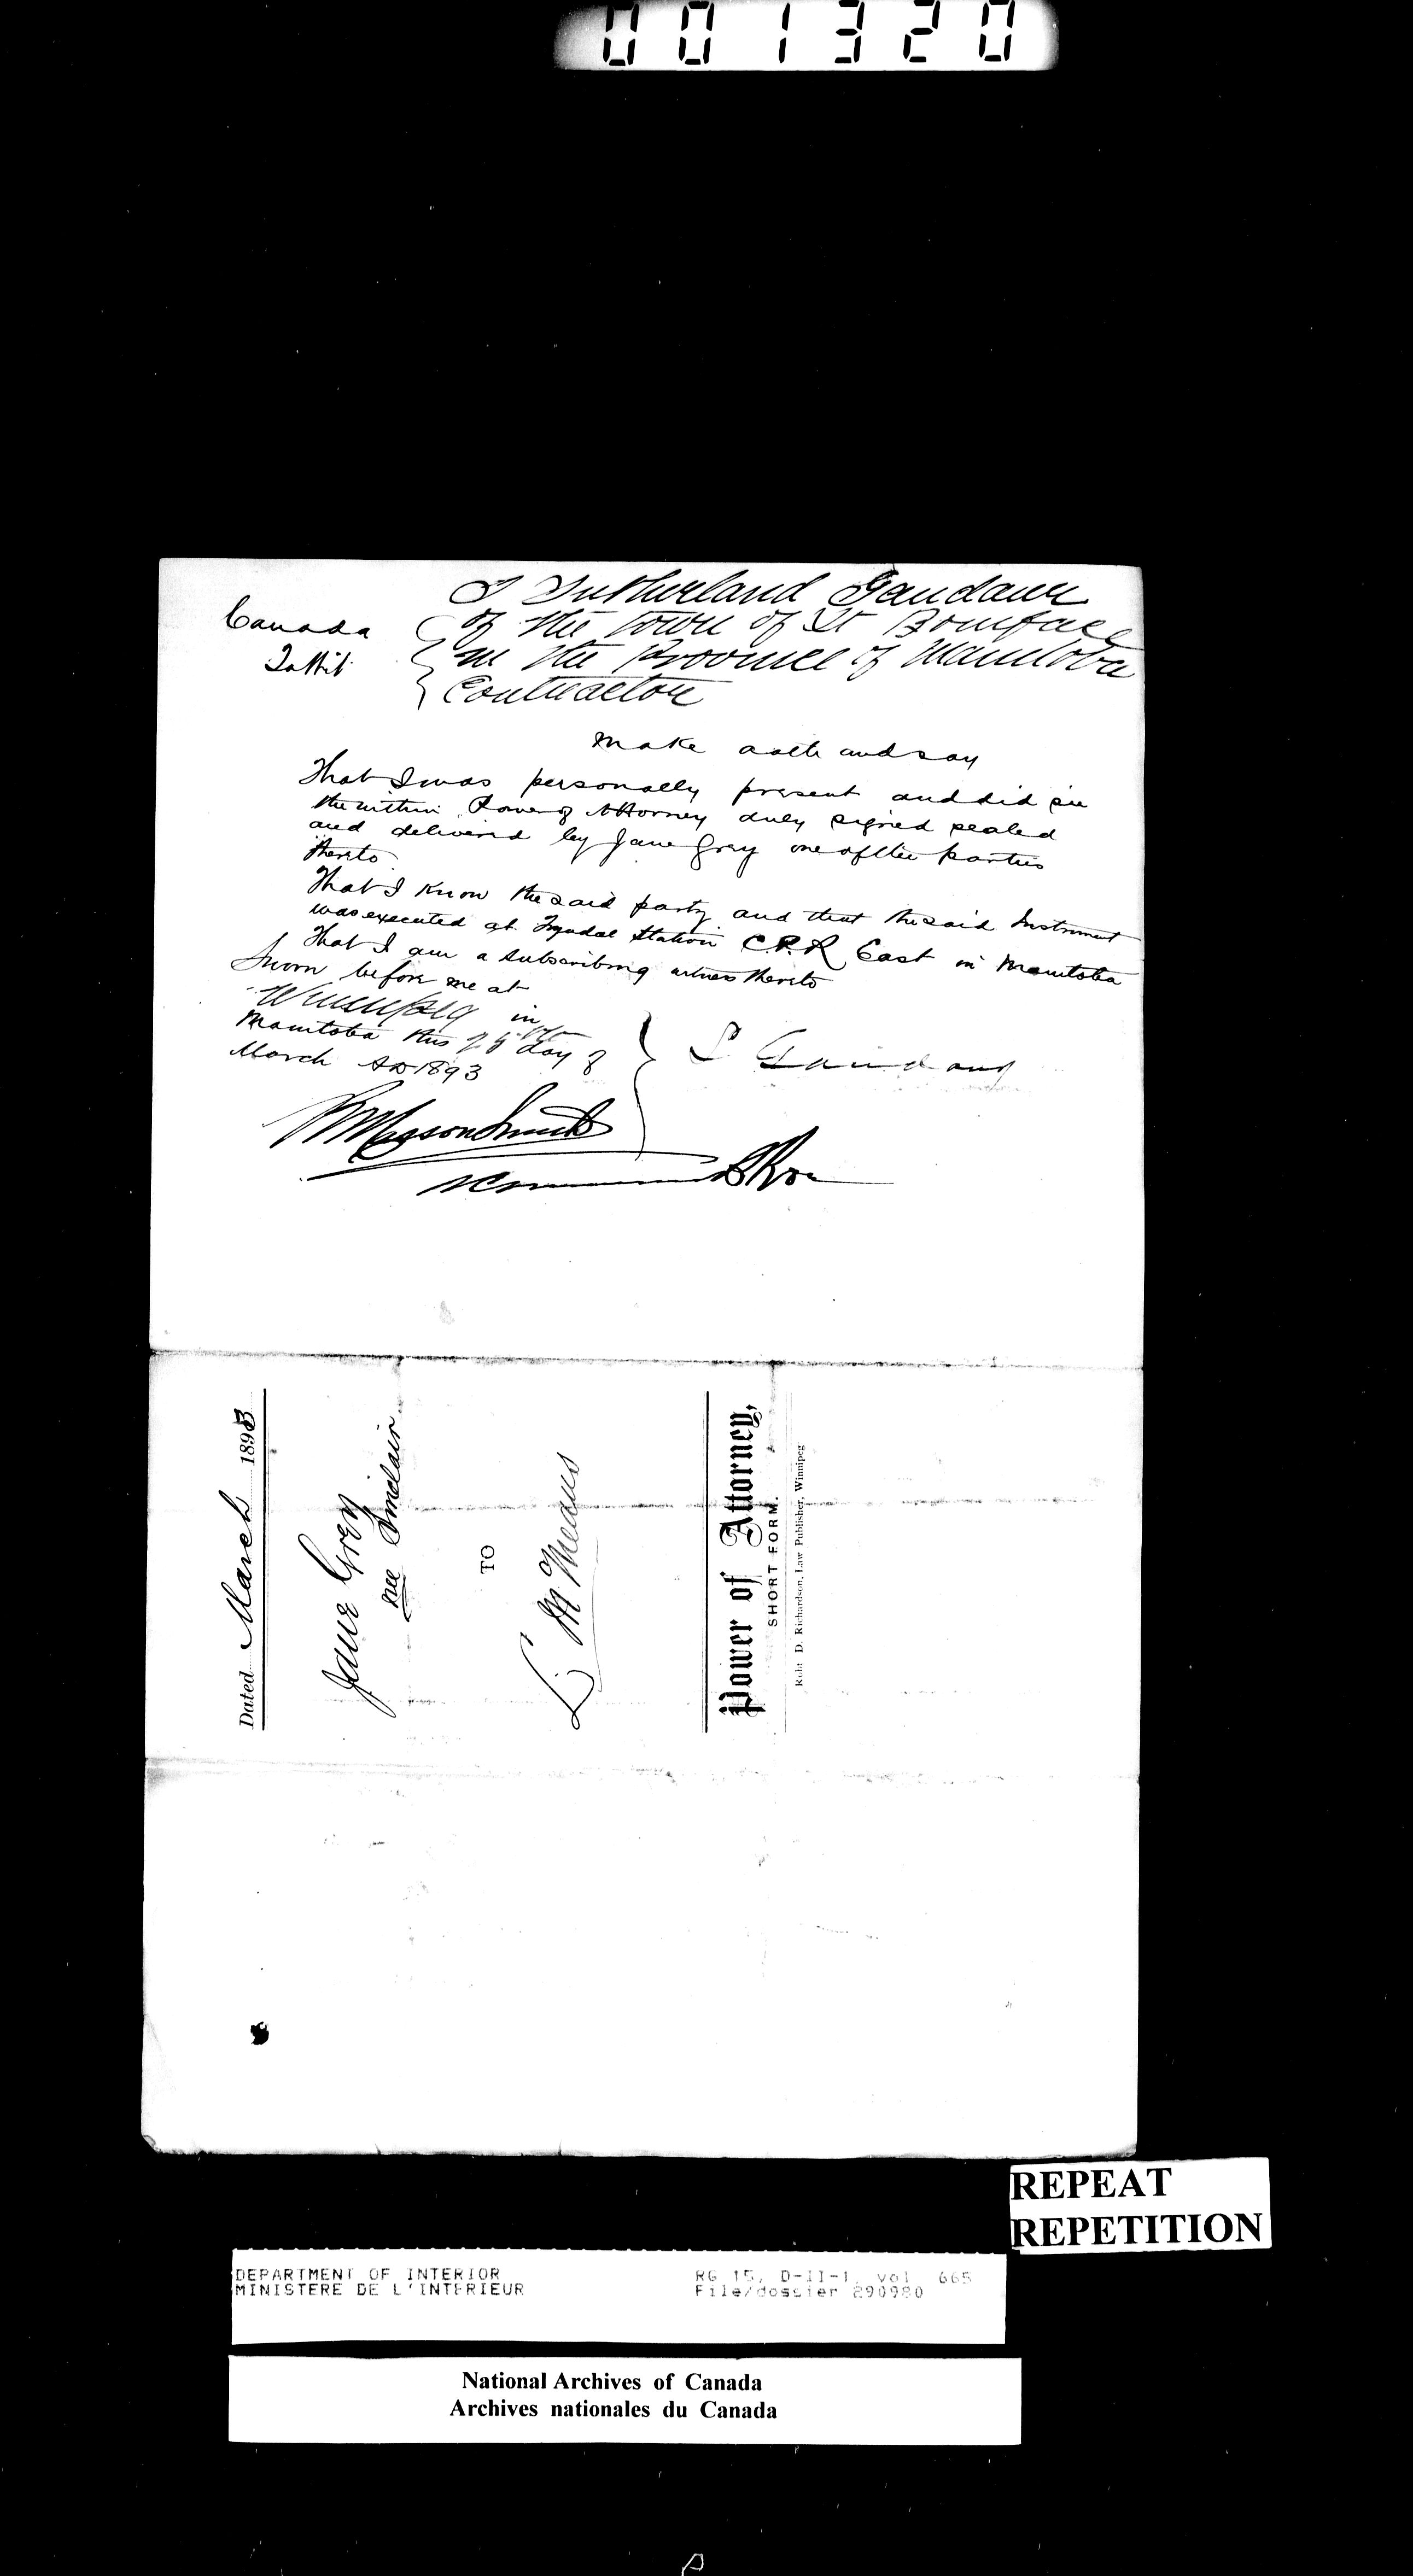 001320
I Sutherland Gandaur
Canada
of the town of St Boniface
To Wit
in the Province of Manitoba
Contractor
Make oath and say
That I was personally present and did see
the within Power of Attorney duly signed sealed
and delivered by Jane Grey one of the parties
thereto
That I know the said party and that the said Instrument
was executed at Tyndal Station C.P.R East in Manitoba
That I am a subscribing witness thereto
Sworn before me at
Winnipeg in
Manitoba this day of
March AD 1893
S Gandaur
Dated March 1893
Jane Grey
nee Sinclair
TO
L. McMeans
Power of Attorney,
SHORT FORM.
Robt D. Richardson, Law Publisher, Winnipeg
REPEAT
REPETITION
DEPARTMENT OF INTERIOR
MINISTERE DE L'INTERIEUR
RG 15, D-II-1, vol 665
File/dossier 290980
National Archives of Canada
Archives nationales du Canada